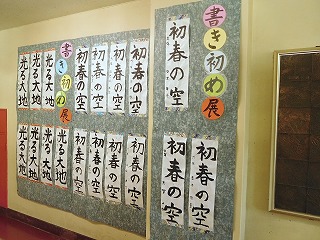 書き初め展
初春の空
初春の空
初春の空
初春の空
初春の空
初春の空
初春の空
書き初め展
光る大地
光る大地
光る大地
初春の空
初春の空
初春の空
初春の空
光る大地
光る大地
光る大地
光る大地